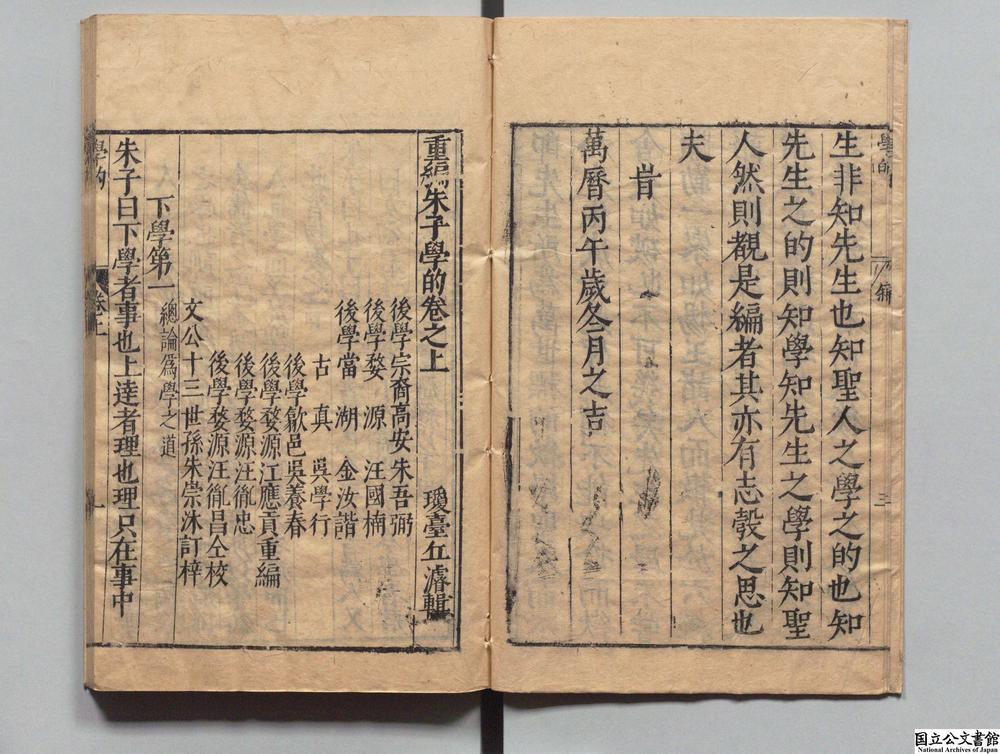 生非知先生也知聖人之學之的也知
先生之的則知學知先生之學則知聖
人然則觀是編者其亦有志彀之思也
夫
旹
萬曆丙午歲冬月之吉
重編朱子學的卷之上
瓊臺丘濬輯
後學宗裔高安朱吾弼
後學婺源汪國楠
後學當湖金汝諧
古真吳學行
後學歙邑吳養春
後學婺源江應貢重編
後學婺源汪胤忠
後學婺源汪胤昌仝校
文公十三世孫朱崇沐訂梓
下學第一
總論為學之道
朱子曰下學者事也上達者理也理只在事中
學的
卷上
一
国立公文書館
National Archives of Japan